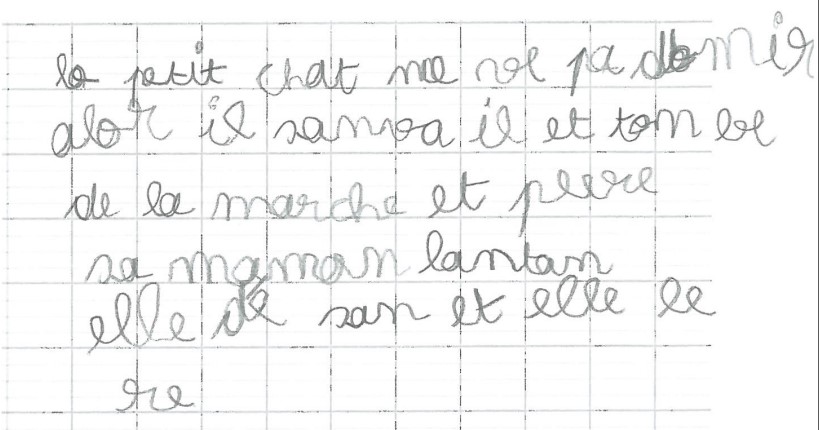 le petit chat ne ve pa domir
alor il sanva il et tombe
de la marche et pleure
sa maman lantan
elle dé san et elle le
re